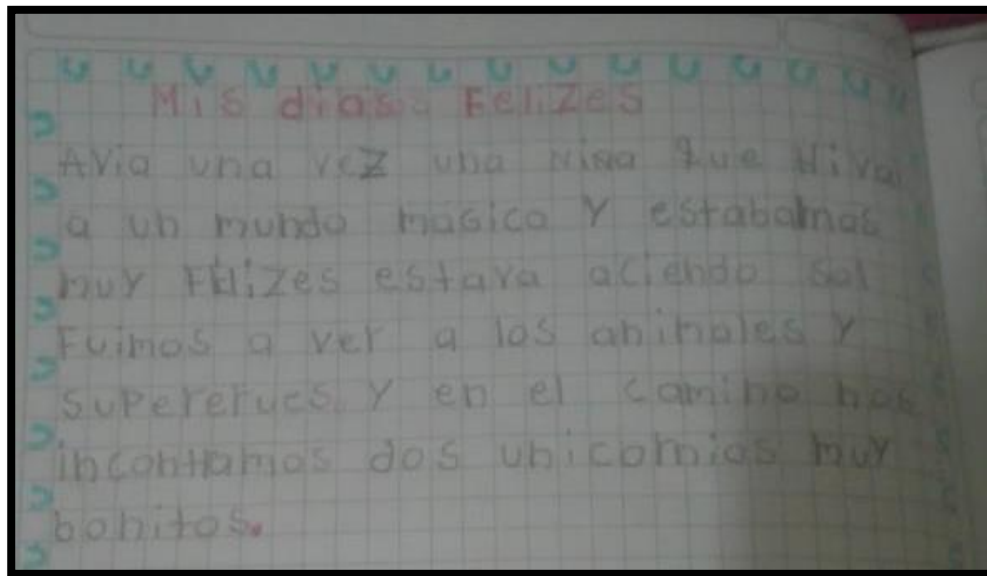 Mis dias Felizes
AVia una vez una niña que Hiva
a un mundo magico Y estabamos
muy Felizes estava aciendo sol
Fuimos a ver a los animales Y
supererues Y en el camino nos
incontramos dos unicornios muy
bonitos.